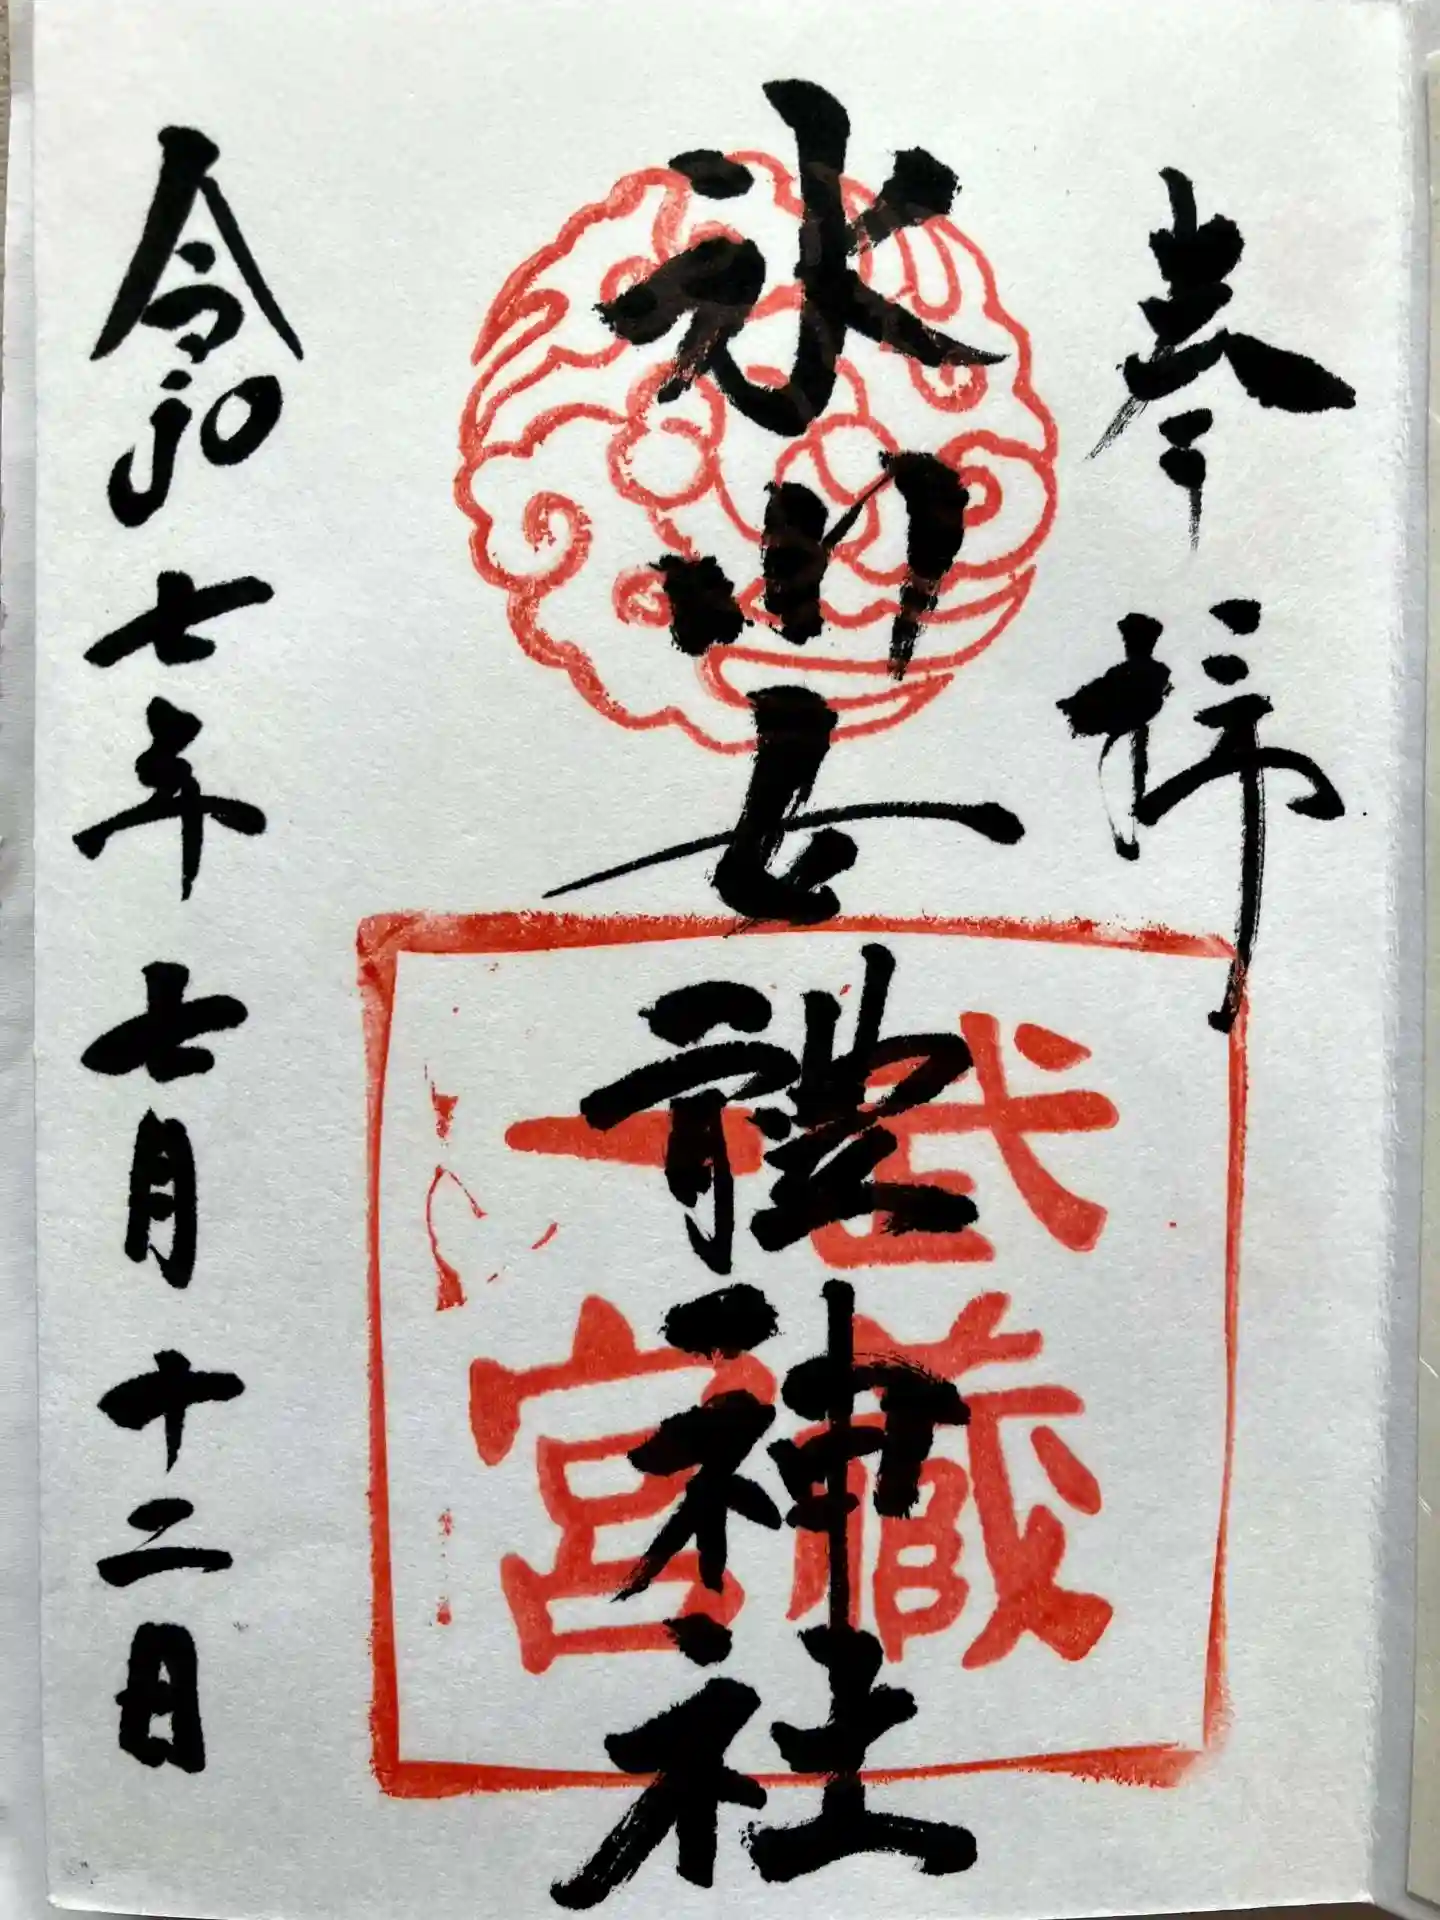 奉拝
氷川女體神社
武蔵
一宮
令和七年七月十二日